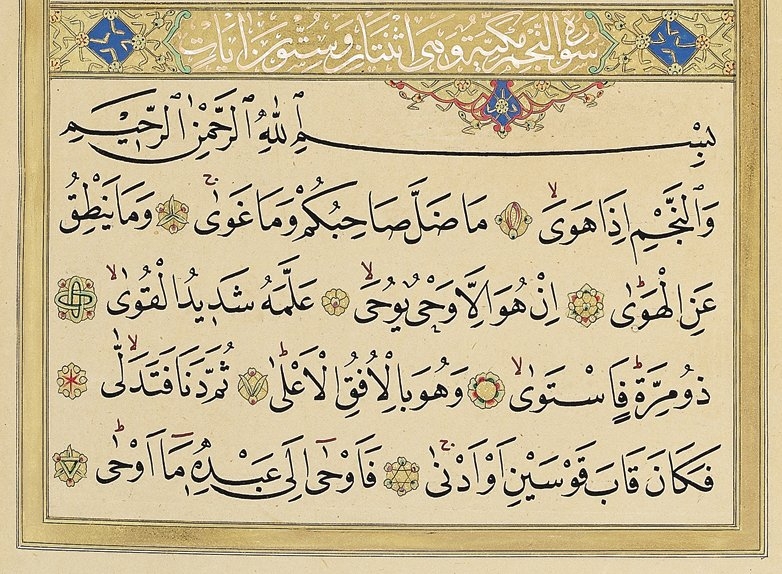 سورة النجم مكية وهى اثنتان وستون ايات
بِسْمِ ٱللّٰهِ ٱلرَّحْمٰنِ ٱلرَّحِيمِ
وَٱلنَّجْمِ اِذَا هَوٰىۙ مَا ضَلَّ صَاحِبُكُمْ وَمَا غَوٰىۚ وَمَا يَنْطِقُ
عَنِ الْهَوٰىۜ اِنْ هُوَ اِلَّا وَحْىٌ يُوحٰىۙ عَلَّمَهُ شَدٖيدُ الْقُوٰىۙ
ذُو مِرَّةٍۜ فَاسْتَوٰىۙ وَهُوَ بِالْاُفُقِ الْاَعْلٰىۜ ثُمَّ دَنَا فَتَدَلّٰىۙ
فَكَانَ قَابَ قَوْسَيْنِ اَوْ اَدْنٰىۚ فَاَوْحٰٓى اِلٰى عَبْدِهٖ مَٓا اَوْحٰىۜ